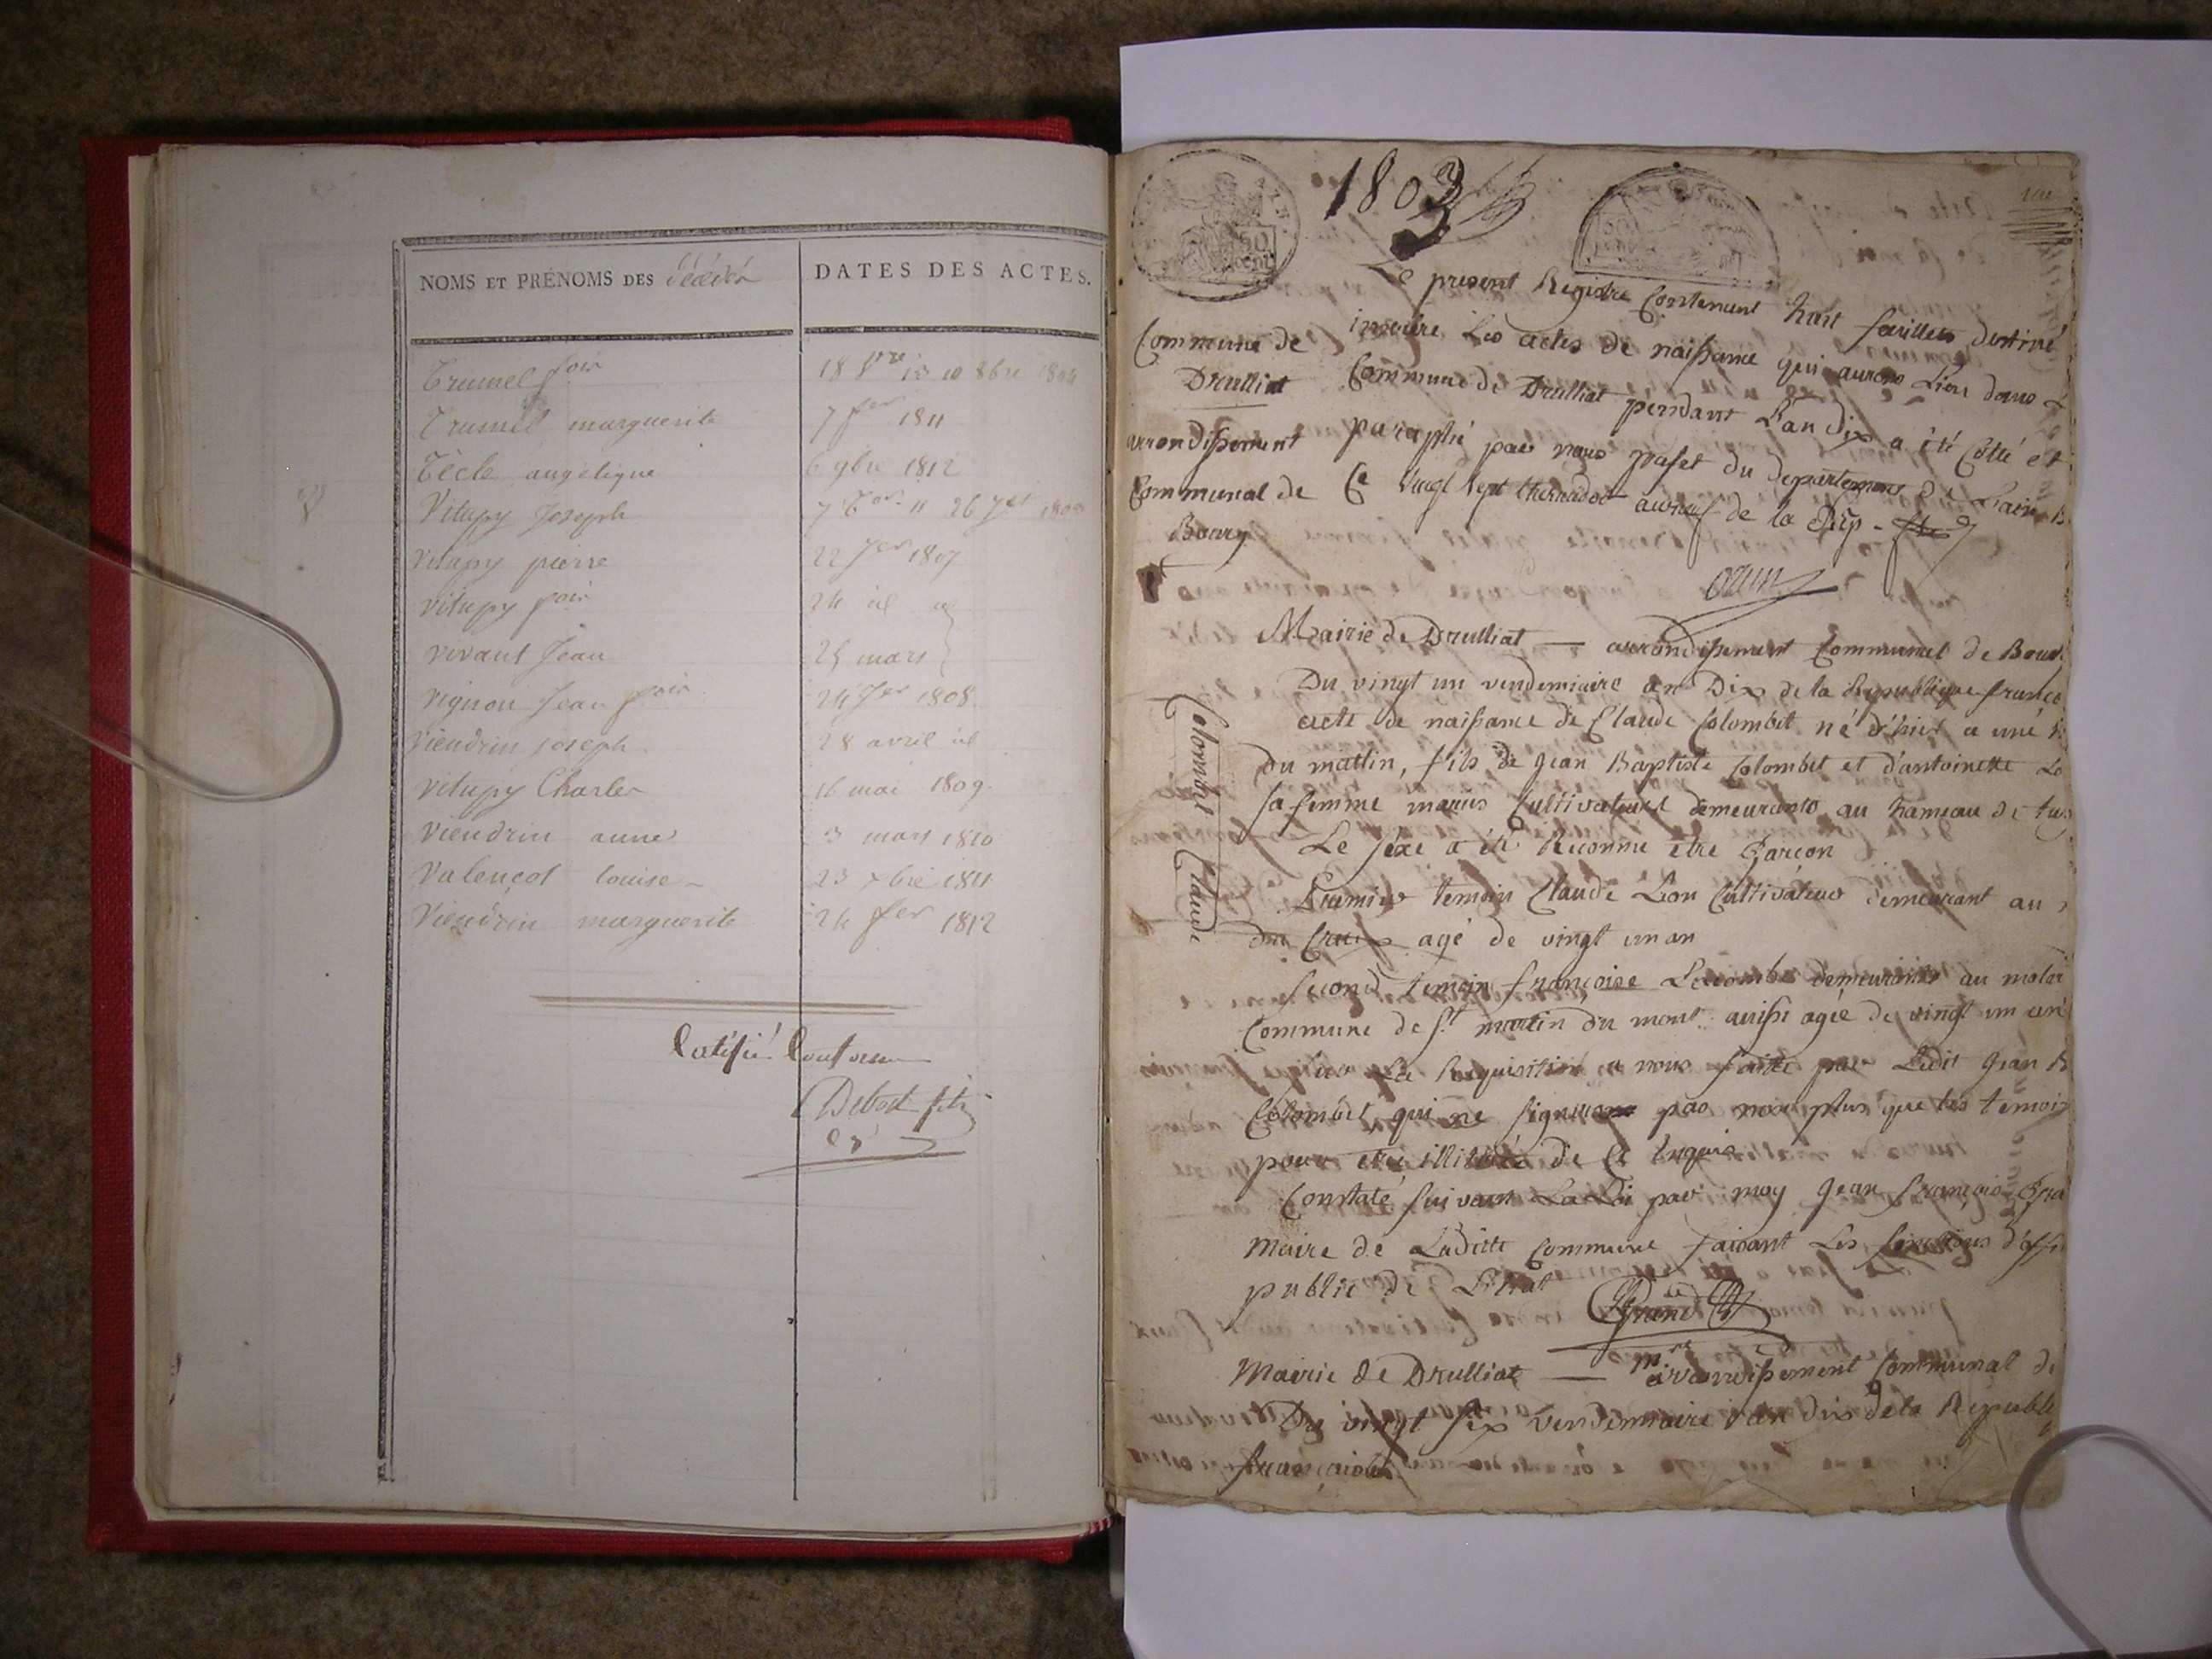 NOMS ET PRÉNOMS DES décédés
DATES DES ACTES.
Trumel fois
18 10 8bre 1804
Trumel marguerite
7 fer 1811
Tècle angelique
6 9bre 1812
Vitupy Joseph
26
Vitupy pierre
22 Jer 1807
Vitupy fois
24 id id
vivant Jean
25 mars
vignon Jean fois
24 Jer 1808
Viendrin Joseph
28 avril id
Vitupy Charles
16 mai 1809
Viendrin anne
3 mars 1810
Valençot louise
23 7bre 1811
Viendrin marguerite
24 fer 1812
Certifié Conforme
Debost fils
1803
Commune de
Drulliat
arrondissement
Communal de
Bourg
Le present Registre Contenant huit feuillets destiné
inscrire Les actes de naissance qui auront Lieu dans
Commune de Drulliat pendant L'an dix a été Coté et
paraphé par nous prefet du Departement de L'ain
Ce vingt sept thermidor an neuf de la Rép.
Mairie de Drulliat — arrondissement Communal de Bour
Colombet Claude
Du vingt un vendemiaire an Dix de la Republique françe
acte de naissance de Claude Colombet né d'hier a une
du mattin, fils de Jean Baptiste Colombet et d'antoinette
sa femme mariés Cultivateurs demeurants au hameau de
Le sexe a été Reconnu etre Garçon
Premier temoin Claude Lion Cultivateur demeurant au
du Creux agé de vingt un an
second temoin françoise Lacombe demeurante au
Commune de St martin du mont aussi agée de vingt un an
sur La Requisition a nous faitte par Ledit Jean
Colombet, qui ne signe pas non plus que les temoin
pour etre illitérés de Ce Enquis
Constaté suivant La Loi par moy Jean françois
Maire de Laditte Commune faisant Les fonctions d'
public de L'Etat
Grand
Mairie de Drulliat — arrondissement Communal de
Du vingt six vendemiaire an dix de la Republ
françaises